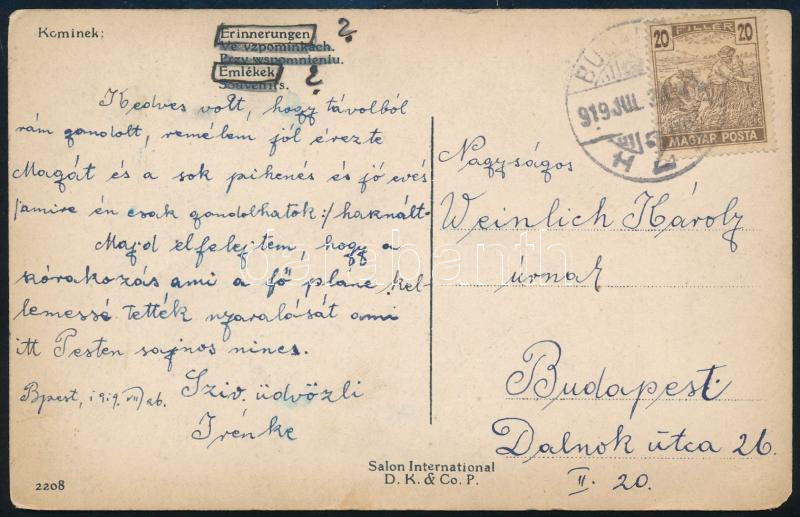 Kominek:
Erinnerungen ?
Ve vzpomínkách.
Przy wspomnieniu.
Emlékek ?
Souvenirs.
Kedves volt, hogy távolból
rám gondolt, remélem jól érezte
Magát és a sok pihenés és jó evés
/:amire én csak gondolhatok:/ használt.
Majd elfelejtem, hogy a
szórakozás ami a fő pláne! kel-
lemessé tették nyaralását ami
itt Pesten sajnos nincs.
Bpest, 1919. VII/26. Sziv. üdvözli
Irénke
2208
Salon International
D. K. & Co. P.
20 FILLÉR 20
MAGYAR POSTA
919 JUL
Nagyságos
Weinlich Károly
úrnak
Budapest
Dalnok útca 26.
II. 20.
darabanth